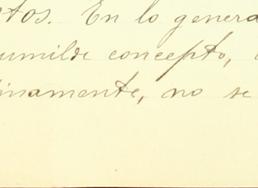 tos. En lo genera
umilde concepto,
inamente, no se